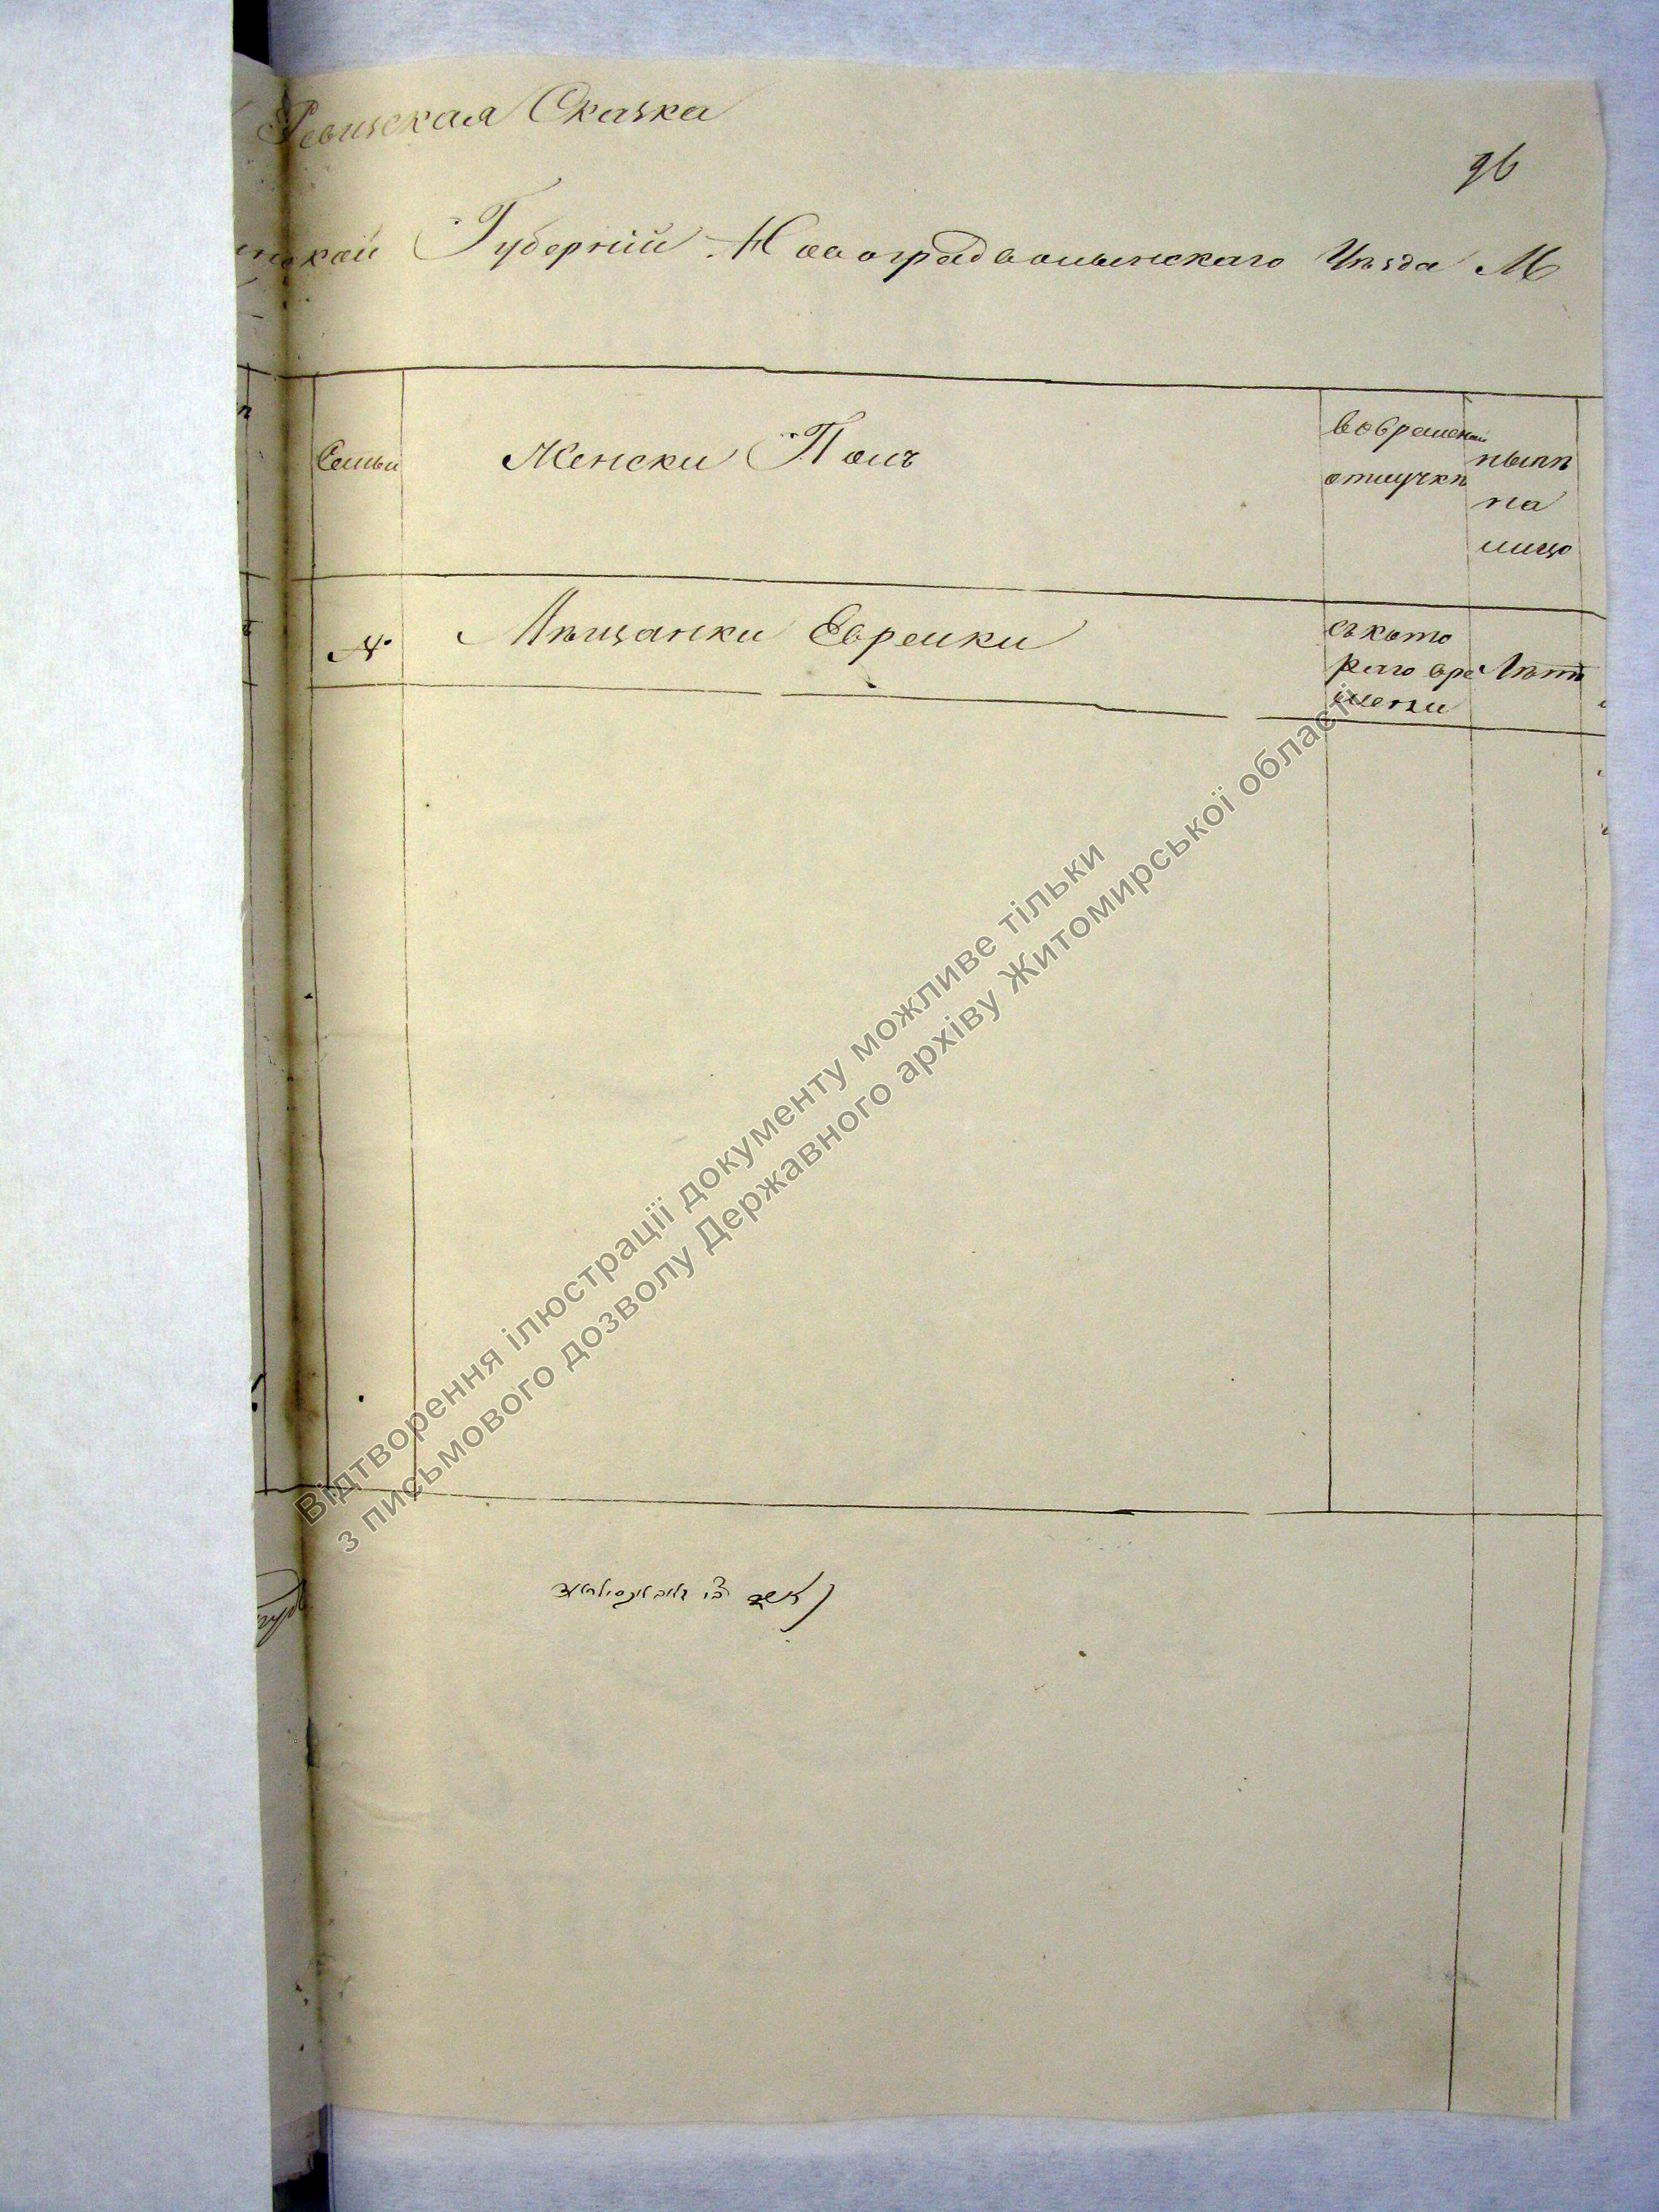 Ревизская Сказка
96
нской Губерніи Новоградволынскаго Уѣзда М
Семьи
Женски Полъ
вовремен
отлучкѣ
нынѣ
на
лицо
№
Мѣщанки Еврейки
съ кото
раго вре
мени
Лѣта
Відтворення ілюстрації документу можливе тільки
з письмового дозволу Державного архіву Житомирської області